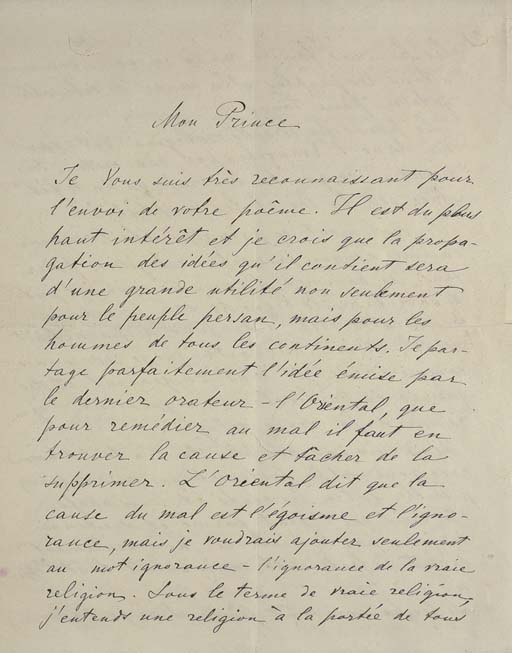 Mon Prince
Je Vous suis très reconnaissant pour
l'envoi de votre poême. Il est du plus
haut intérêt et je crois que la propa-
gation des idées qu'il contient sera
d'une grande utilité non seulement
pour le peuple persan, mais pour les
hommes de tous les continents. Je par-
tage parfaitement l'idée émise par
le dernier orateur - l'Oriental, que
pour remédier au mal il faut en
trouver la cause et tâcher de la
supprimer. L'Oriental dit que la
cause du mal est l'égoisme et l'igno-
rance, mais je voudrais ajouter seulement
au mot ignorance - l'ignorance de la vraie
religion. Sous le terme de vraie religion,
j'entends une religion à la portée de tous